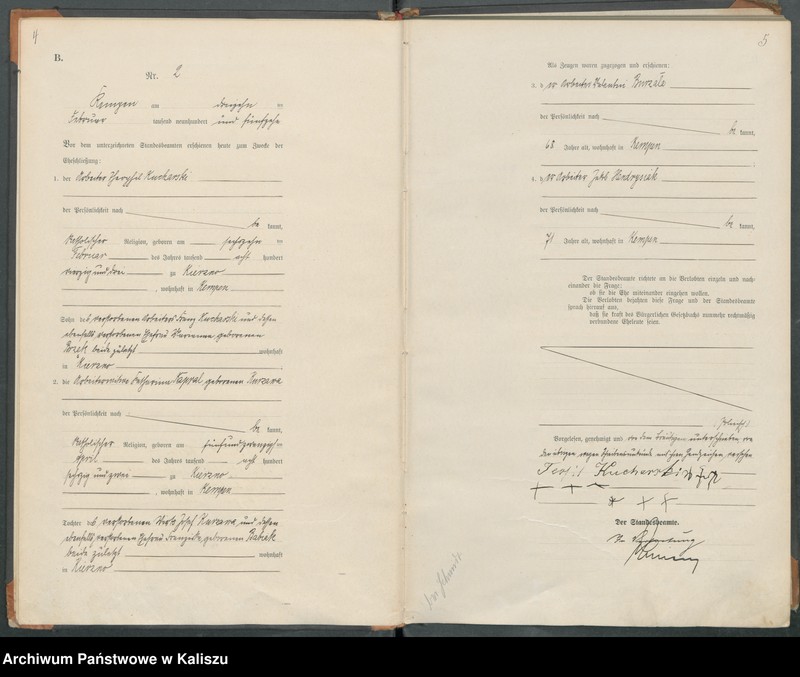 4
B.
Nr. 2
Kempen am dreizehn ten
Februar tausend neunhundert und fünfzehn
Vor dem unterzeichneten Standesbeamten erschienen heute zum Zwecke der
Eheschließung:
1. der Arbeiter Kucharski
der Persönlichkeit nach
be kannt,
katholischer Religion, geboren am sechszehn ten
Februar des Jahres tausend acht hundert
vierzig und drei zu Kierzno
, wohnhaft in Kempen
Sohn des verstorbenen Arbeiters Franz Kucharski und dessen
ebenfalls verstorbenen Ehefrau Marianna geborenen
beide zuletzt wohnhaft
in Kierzno
2. die Arbeiterwitwe Katharina Kapral geborene Kurzawa
der Persönlichkeit nach
be kannt,
katholischer Religion, geboren am fünfundzwanzigsten
April des Jahres tausend acht hundert
sechzig und zwei zu Kierzno
, wohnhaft in Kempen
Tochter des verstorbenen Wirts Josef Kurzawa und dessen
ebenfalls verstorbenen Ehefrau geborenen
beide zuletzt wohnhaft
in Kierzno
5
Als Zeugen waren zugezogen und erschienen:
3. der Arbeiter Valentin
der Persönlichkeit nach
be kannt,
68 Jahre alt, wohnhaft in Kempen
4. der Arbeiter
der Persönlichkeit nach
be kannt,
71 Jahre alt, wohnhaft in Kempen
Der Standesbeamte richtete an die Verlobten einzeln und nach-
einander die Frage:
ob sie die Ehe miteinander eingehen wollen.
Die Verlobten bejahten diese Frage und der Standesbeamte
sprach hierauf aus,
daß sie kraft des Bürgerlichen Gesetzbuchs nunmehr rechtmäßig
verbundene Eheleute seien.
Vorgelesen, genehmigt und von dem Bräutigam unterschrieben, von
den übrigen wegen mit ihren Handzeichen versehen
Kucharski
+ + +
+ +
Der Standesbeamte.
In Vertretung
Archiwum Państwowe w Kaliszu